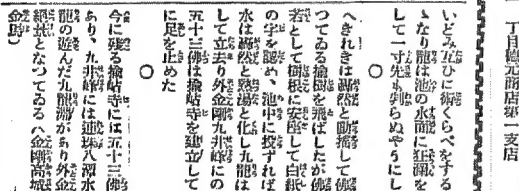 丁目德元商店第一支店
いどみ互ひに術くらべをする
ゝなり龍は池の水面に狂瀾を
して一寸先も判らぬやうにし
○
へきれきは轟然と動搖して佛
つてゐる楡樹を飛ばしたが佛
若として樹根に安座して白紙
の字を認め、池中に投ずれば
水は轟然と熱湯と化し九龍は
して立去り外金剛九井峰にの
五十三佛は楡岾寺を建立して
に足を止めた
○
今に殘る楡岾寺には五十三佛
あり、九井峰には連珠八潭水
龍の遊んだ九龍淵があり外金
絕景となつてゐる(金剛高城
金時)